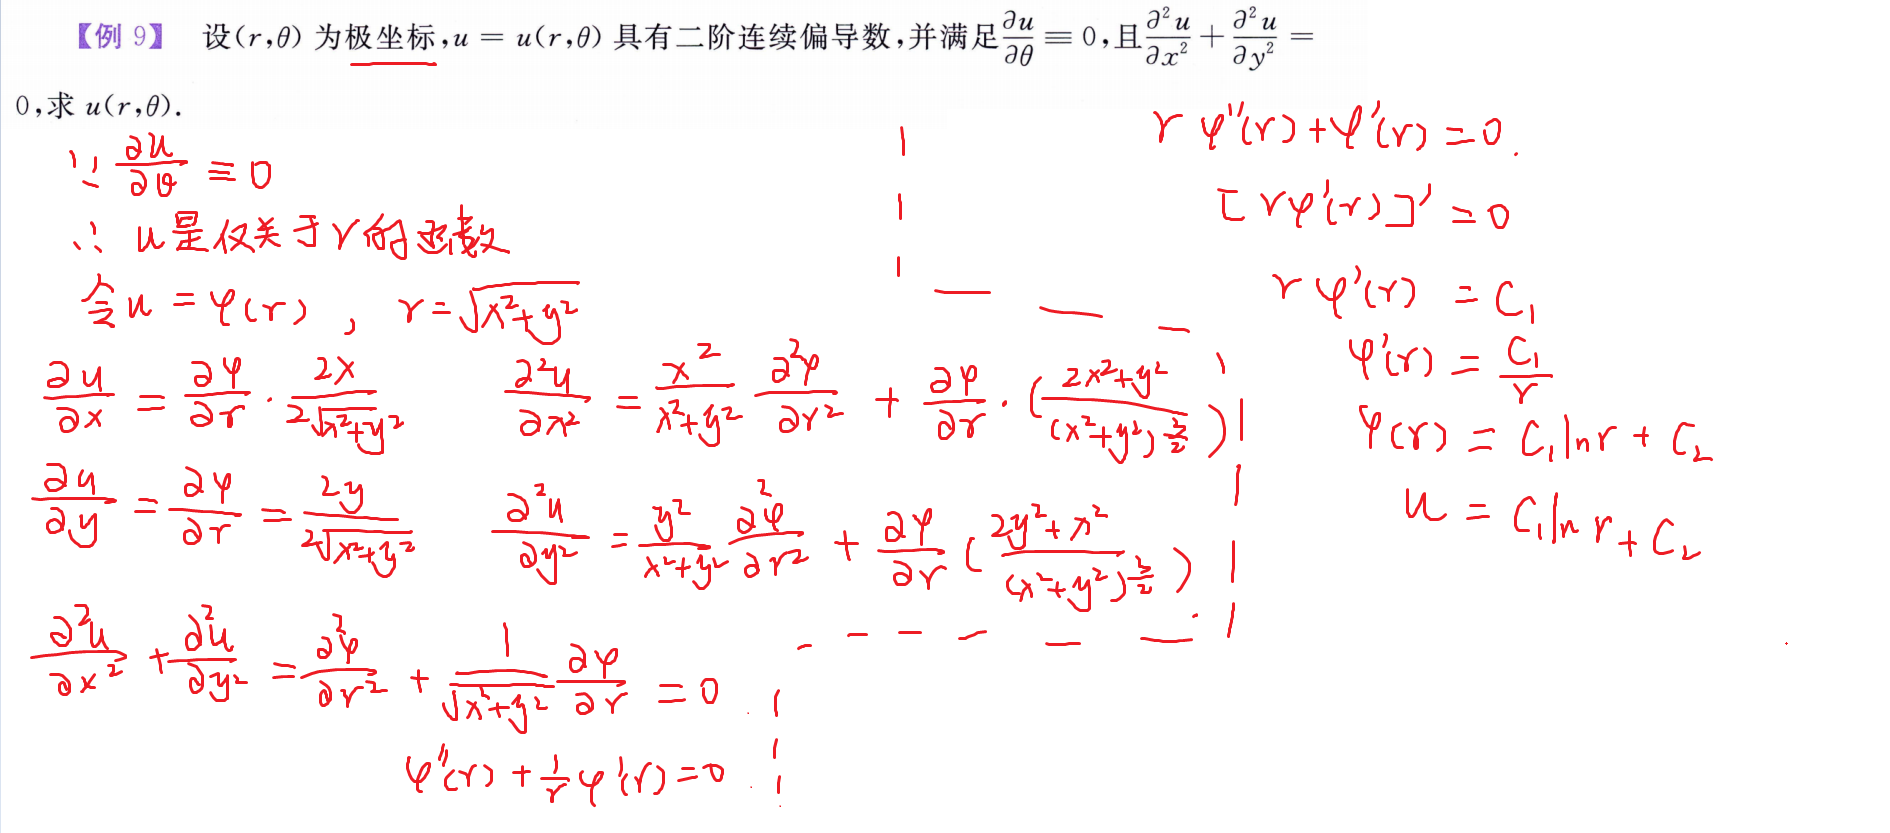 【例 9】 设(r,θ)为极坐标,u = u(r,θ)具有二阶连续偏导数,并满足∂u/∂θ ≡ 0,且∂²u/∂x² + ∂²u/∂y² =
0,求 u(r,θ).
∵ ∂u/∂θ ≡ 0
∴ u是仅关于r的函数
令u = φ(r) , r = √(x²+y²)
∂u/∂x = ∂φ/∂r · 2x/(2√(x²+y²)) ∂²u/∂x² = x²/(x²+y²) ∂²φ/∂r² + ∂φ/∂r · ((2x²+y²)/(x²+y²)^(3/2))
∂u/∂y = ∂φ/∂r = 2y/(2√(x²+y²)) ∂²u/∂y² = y²/(x²+y²) ∂²φ/∂r² + ∂φ/∂r ((2y²+x²)/(x²+y²)^(3/2))
∂²u/∂x² + ∂²u/∂y² = ∂²φ/∂r² + 1/√(x²+y²) ∂φ/∂r = 0
φ''(r) + 1/r φ'(r) = 0
r φ''(r) + φ'(r) = 0.
[rφ'(r)]' = 0
r φ'(r) = C₁
φ'(r) = C₁/r
φ(r) = C₁lnr + C₂
u = C₁ln r + C₂